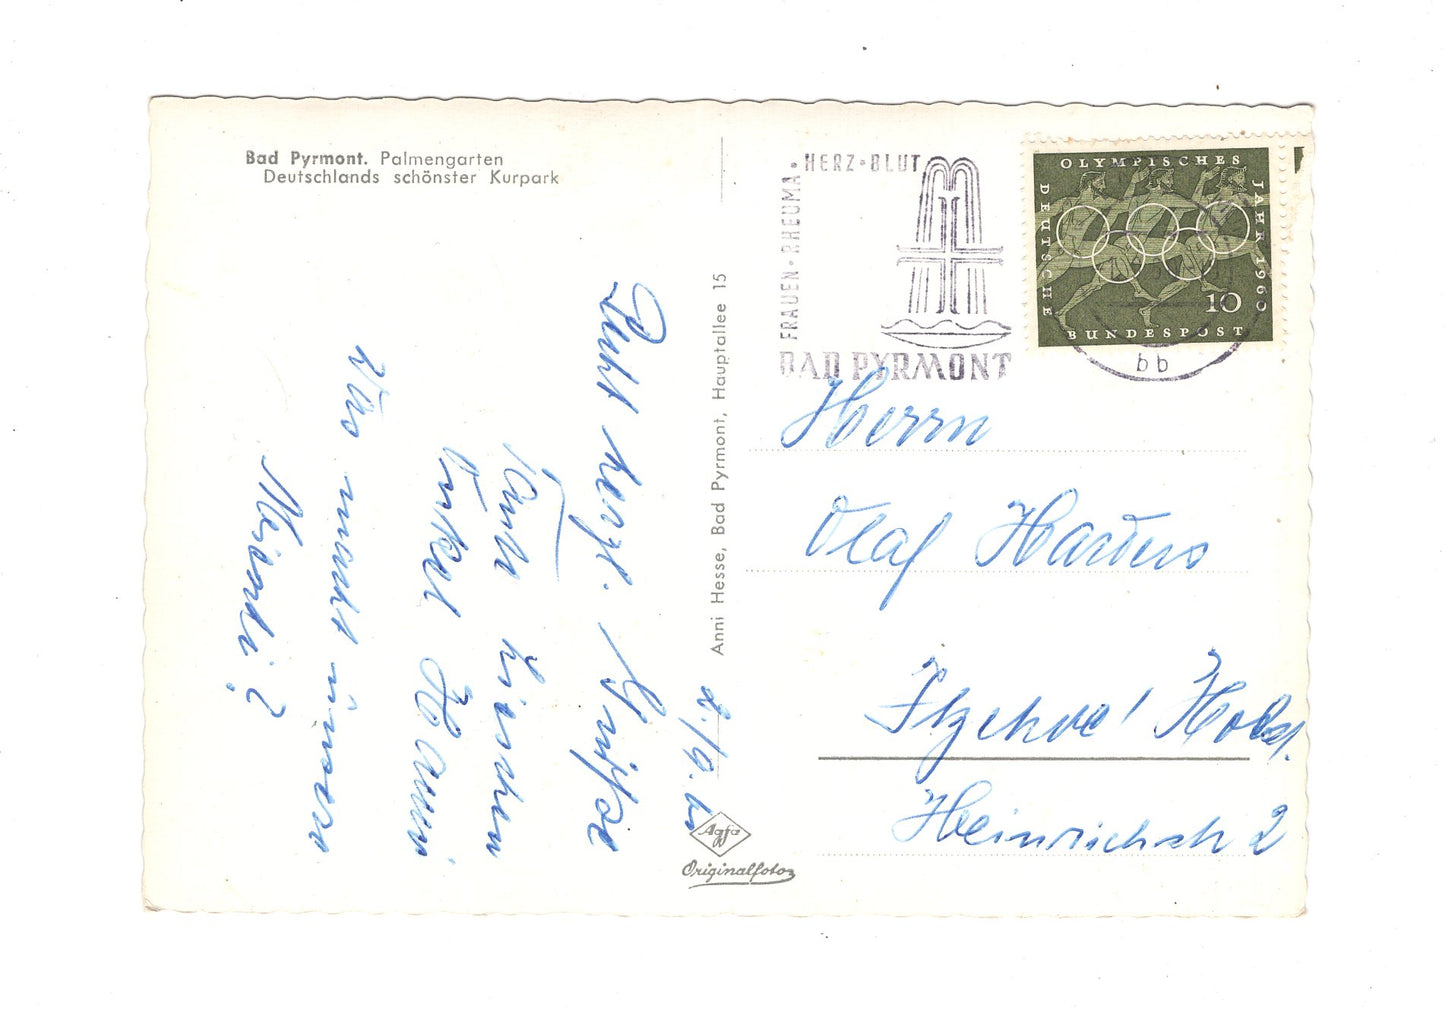 Bad Pyrmont. Palmengarten
Deutschlands schönster Kurpark
FRAUEN · RHEUMA · HERZ · BLUT
BAD PYRMONT
OLYMPISCHES
JAHR 1960
DEUTSCHE
BUNDESPOST
10
bb
Anni Hesse, Bad Pyrmont, Hauptallee 15
2./9. 60
Recht herzl. Grüße
Tante Lieschen
Onkel Hanni
Was macht unsere
?
Herrn
Olaf Harders
Itzehoe / Holst.
Heinrichstr 2
Agfa
Originalfoto